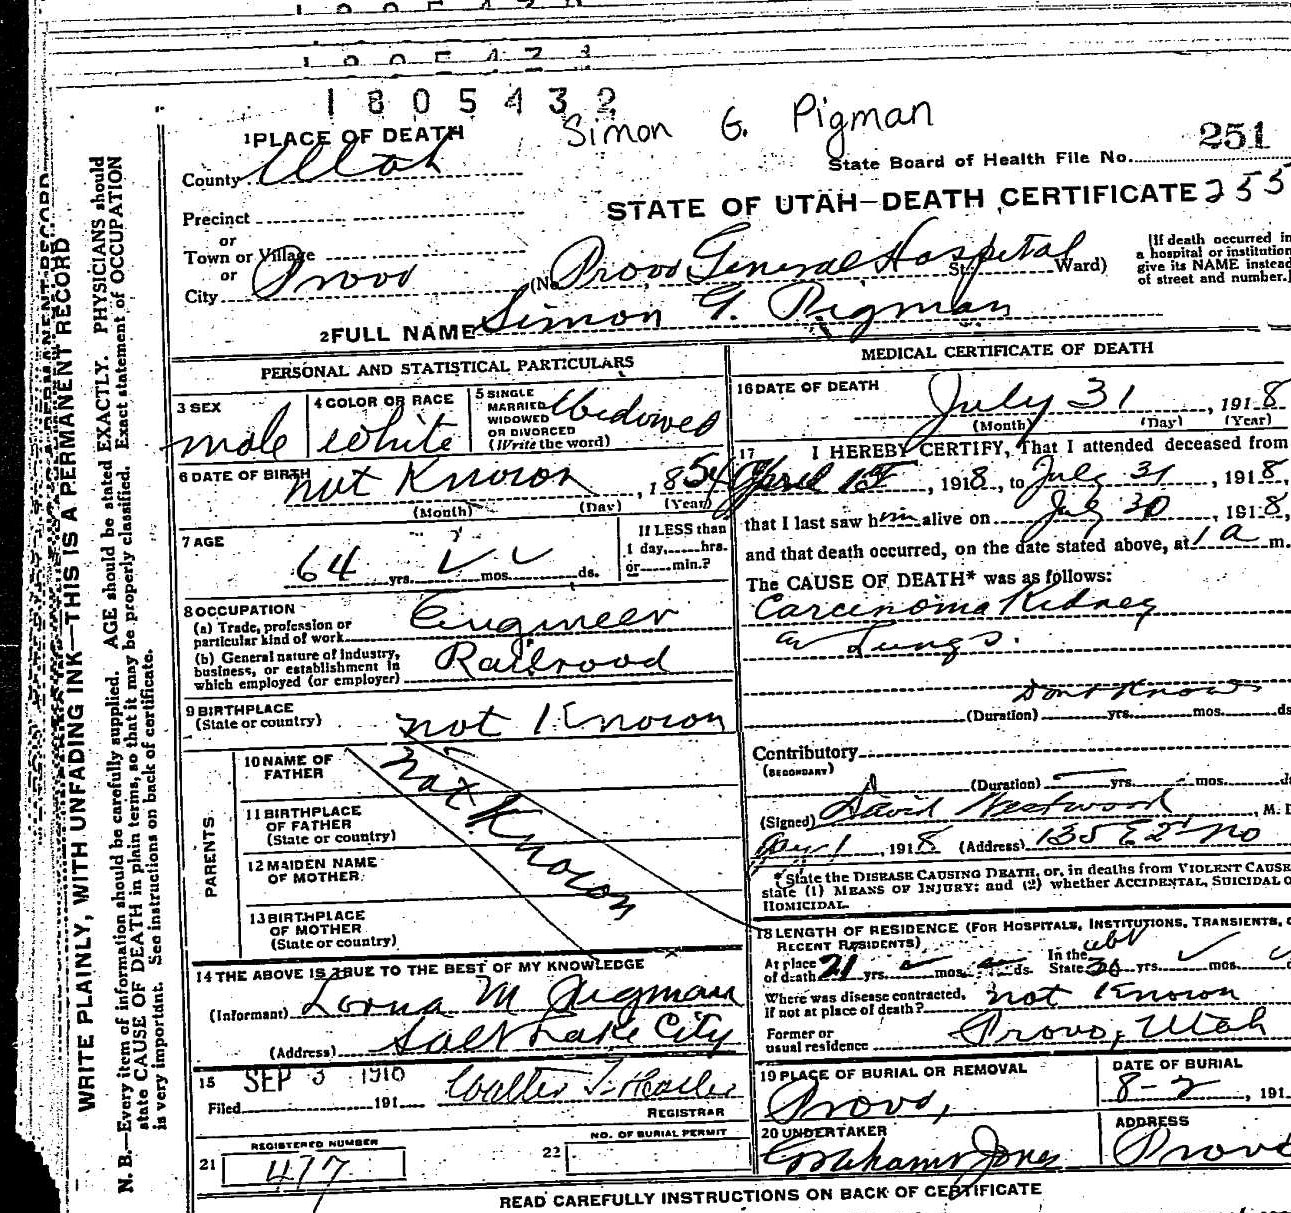 1805432
Simon G. Pigman
1 PLACE OF DEATH
County Utah
State Board of Health File No. 251
Precinct
STATE OF UTAH—DEATH CERTIFICATE 255
or
Town or Village
or
City Provo (No. Provo General Hospital St. Ward)
(If death occurred in
a hospital or institution
give its NAME instead
of street and number.)
2 FULL NAME Simon G. Pigman
PERSONAL AND STATISTICAL PARTICULARS
3 SEX
male
4 COLOR OR RACE
white
5 SINGLE
MARRIED
WIDOWED
OR DIVORCED
(Write the word)
Widowed
6 DATE OF BIRTH not Known, 1854
(Month) (Day) (Year)
7 AGE
64 yrs. mos. ds.
If LESS than
1 day, hrs.
or min.?
8 OCCUPATION
(a) Trade, profession or
particular kind of work Engineer
(b) General nature of industry,
business, or establishment in
which employed (or employer) Railroad
9 BIRTHPLACE
(State or country) not Known
PARENTS
10 NAME OF
FATHER
11 BIRTHPLACE
OF FATHER
(State or country)
12 MAIDEN NAME
OF MOTHER
13 BIRTHPLACE
OF MOTHER
(State or country)
not Known
14 THE ABOVE IS TRUE TO THE BEST OF MY KNOWLEDGE
(Informant) Lorna M Pigman
(Address) Salt Lake City
15 SEP 3 1918
Filed 191
REGISTRAR
REGISTERED NUMBER
21 477
NO. OF BURIAL PERMIT
22
MEDICAL CERTIFICATE OF DEATH
16 DATE OF DEATH
July 31, 1918
(Month) (Day) (Year)
17 I HEREBY CERTIFY, That I attended deceased from
April 1st, 1918, to July 31, 1918,
that I last saw him alive on July 30, 1918,
and that death occurred, on the date stated above, at 1 a m.
The CAUSE OF DEATH* was as follows:
Carcinoma Kidney
Lungs.
Dont Know
(Duration) yrs. mos. ds
Contributory
(SECONDARY)
(Duration) yrs. mos. ds
(Signed) David Westwood, M. D
1, 1918 (Address) 135 E 2d No
*State the DISEASE CAUSING DEATH, or, in deaths from VIOLENT CAUSE
state (1) MEANS OF INJURY; and (2) whether ACCIDENTAL, SUICIDAL O
HOMICIDAL.
18 LENGTH OF RESIDENCE (FOR HOSPITALS, INSTITUTIONS, TRANSIENTS, O
RECENT RESIDENTS)
At place
of death 21 yrs. mos. ds.
In the
State yrs. mos.
Where was disease contracted,
if not at place of death? not Known
Former or
usual residence Provo, Utah
19 PLACE OF BURIAL OR REMOVAL
Provo,
DATE OF BURIAL
8-2, 191
20 UNDERTAKER
Jones
ADDRESS
Provo
READ CAREFULLY INSTRUCTIONS ON BACK OF CERTIFICATE
WRITE PLAINLY, WITH UNFADING INK—THIS IS A PERMANENT RECORD
N. B.—Every item of information should be carefully supplied. AGE should be stated EXACTLY. PHYSICIANS should
state CAUSE OF DEATH in plain terms, so that it may be properly classified. Exact statement of OCCUPATION
is very important. See instructions on back of certificate.